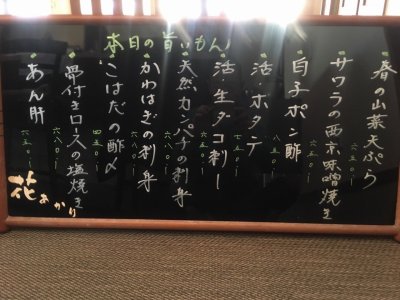 本日の旨いもん!
春の山菜天ぷら
六五〇ー
サワラの西京味噌焼き
六五〇ー
白子ポン酢
八五〇ー
活・ホタテ
活生ダコ刺し
七五〇ー
天然カンパチの刺身
かわはぎの刺身
六八〇ー
こはだの酢〆
四五〇ー
骨付きロースの塩焼き
六八〇ー
あん肝
六五〇ー
花あかり